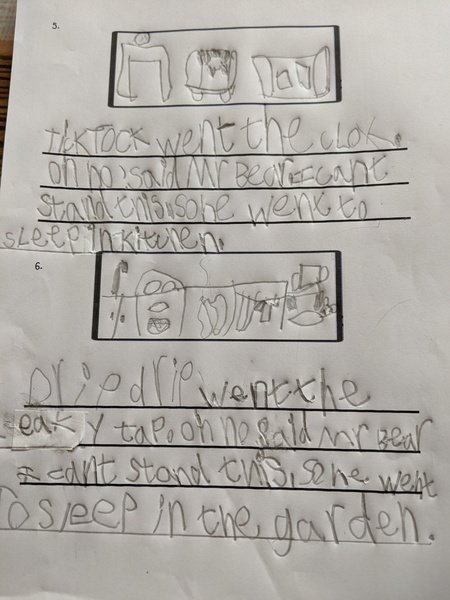 5.
TicKTOCK went the cLOK.
oh no, said Mr Bear I cant
stand this. so he went to
sLeep in kitchen.
6.
Drip drip went the
Leaky tap. oh no said Mr Bear
I cant stand this. so he went
To sleep in the garden.